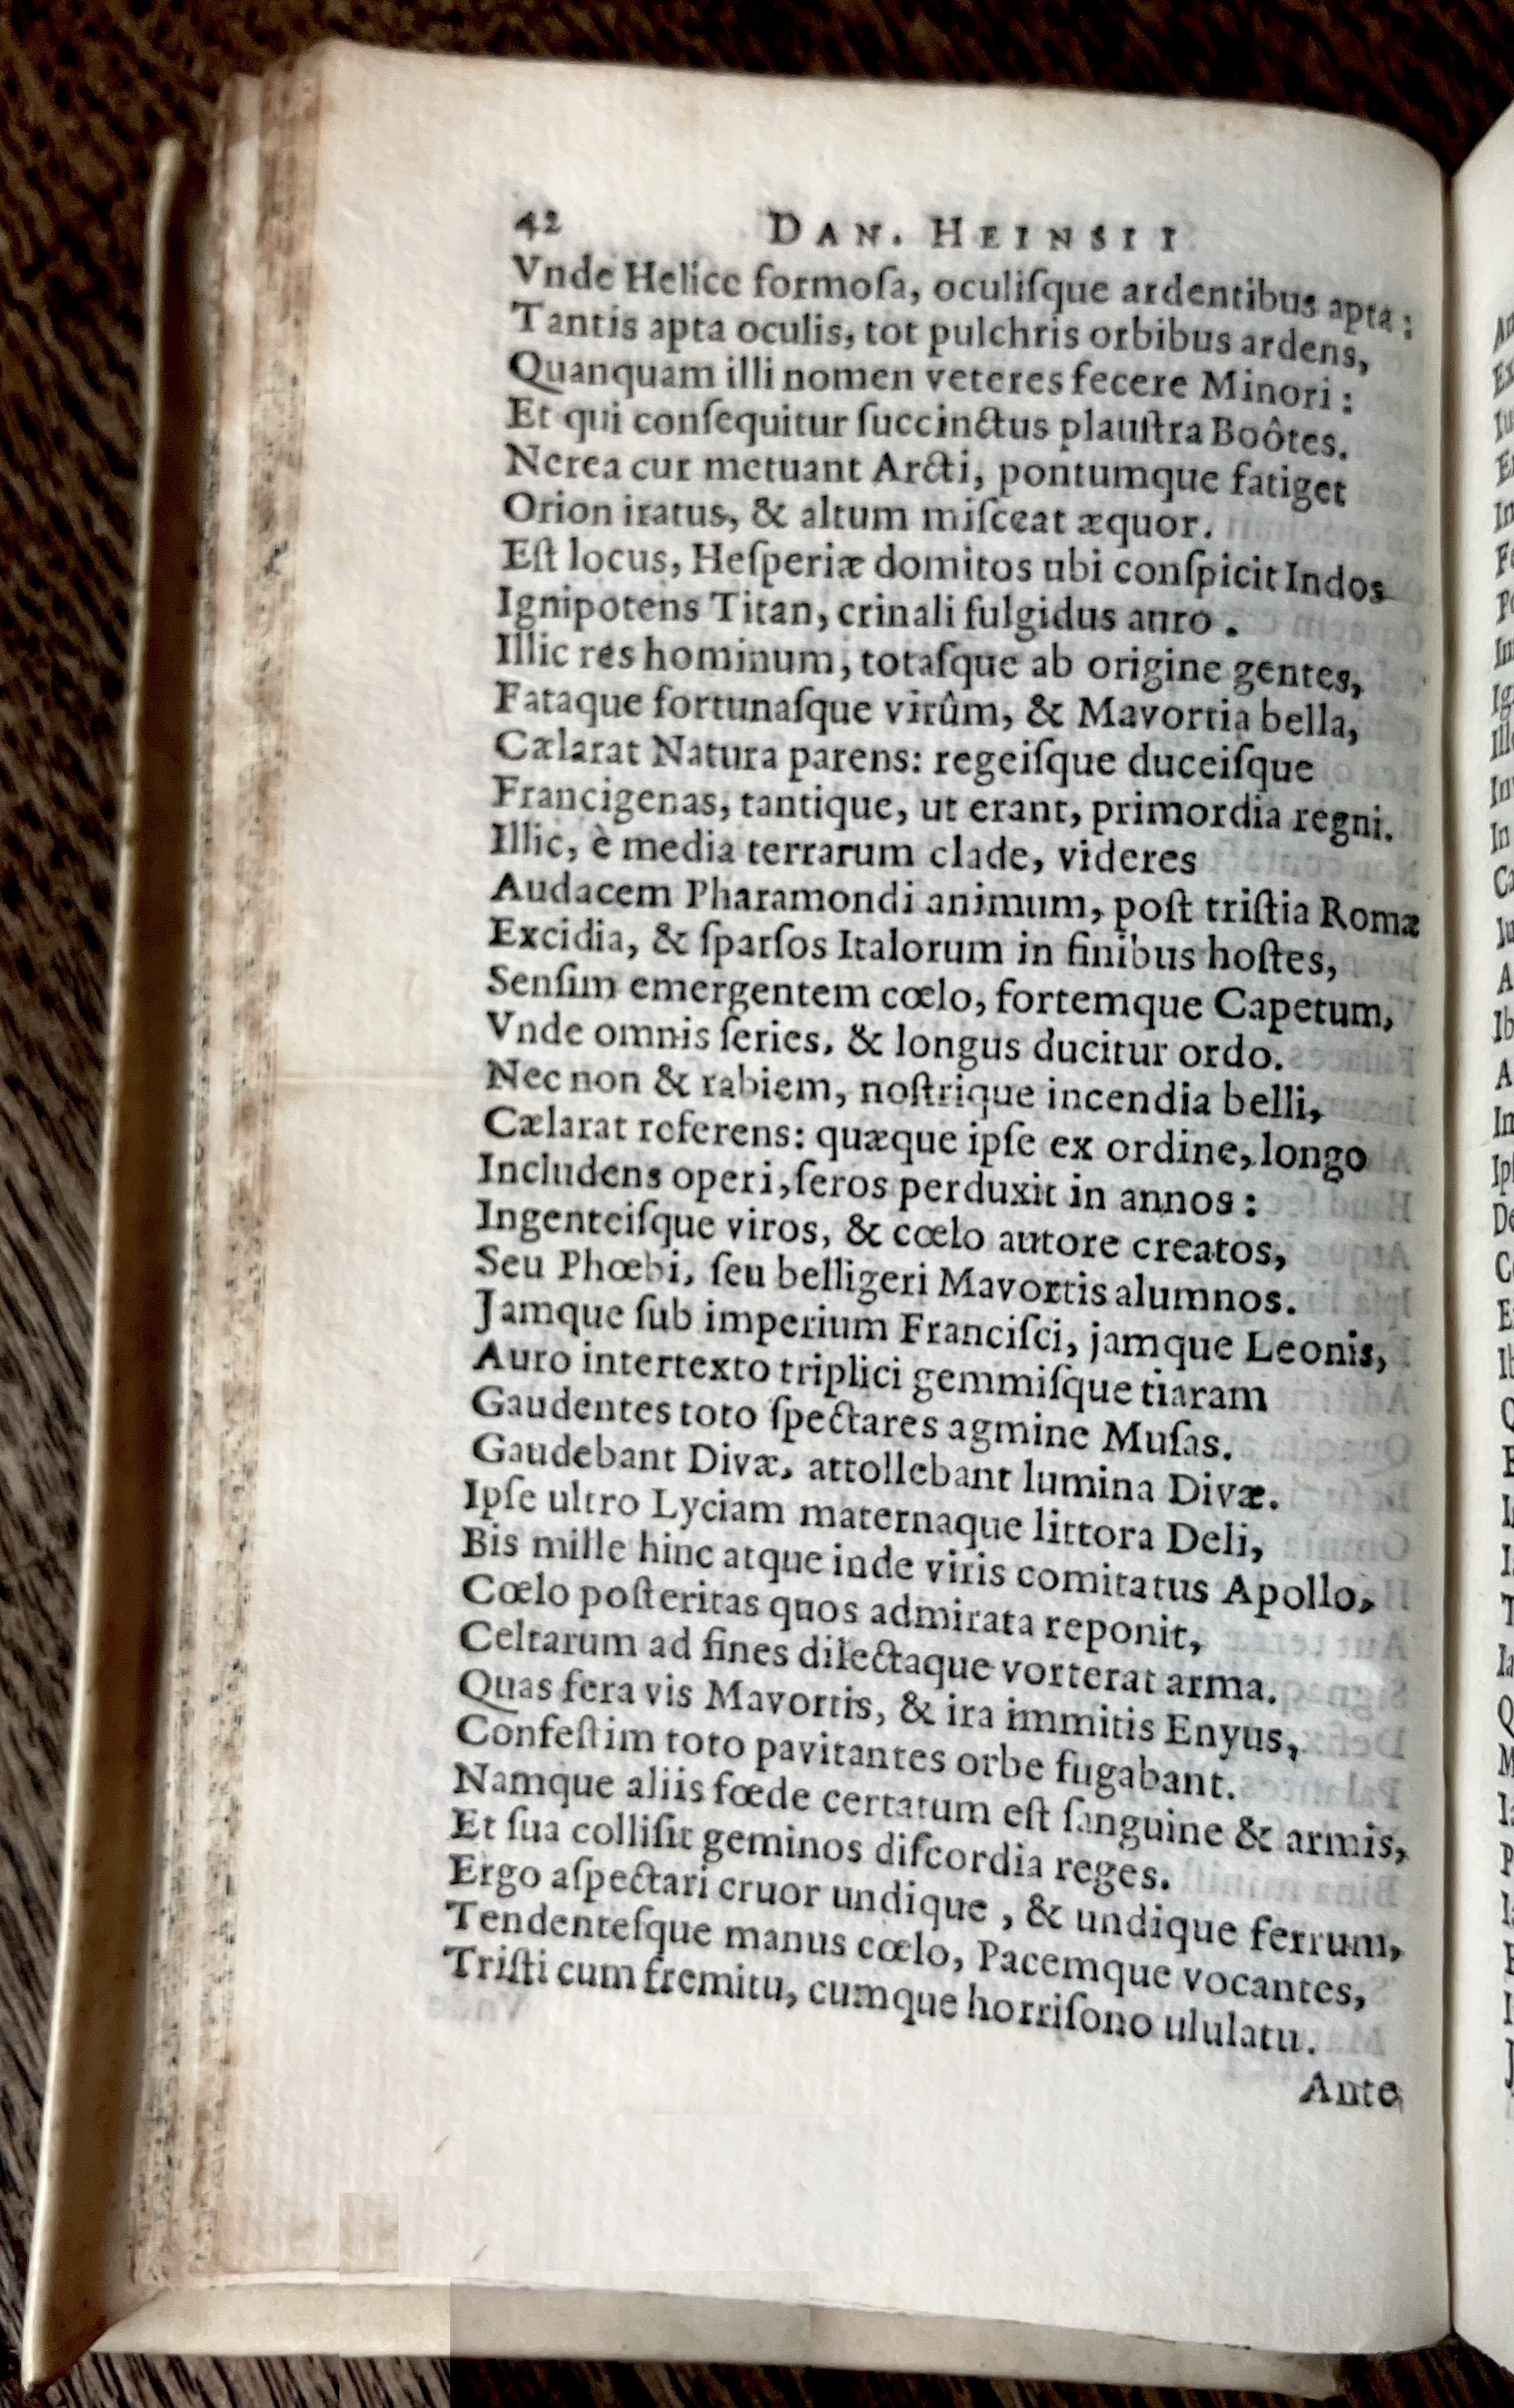 42 DAN. HEINSII
Vnde Helice formoſa, oculiſque ardentibus apta;
Tantis apta oculis, tot pulchris orbibus ardens,
Quanquam illi nomen veteres fecere Minori:
Et qui conſequitur ſuccinctus plauſtra Boôtes.
Nerea cur metuant Arcti, pontumque fatiget
Orion iratus, & altum miſceat æquor.
Eſt locus, Heſperiæ domitos ubi conſpicit Indos
Ignipotens Titan, crinali fulgidus auro.
Illic res hominum, totaſque ab origine gentes,
Fataque fortunaſque virûm, & Mavortia bella,
Cælarat Natura parens: regeiſque duceiſque
Francigenas, tantique, ut erant, primordia regni.
Illic, è media terrarum clade, videres
Audacem Pharamondi animum, poſt triſtia Romæ
Excidia, & ſparſos Italorum in finibus hoſtes,
Senſim emergentem cœlo, fortemque Capetum,
Vnde omnis ſeries, & longus ducitur ordo.
Nec non & rabiem, noſtrique incendia belli,
Cælarat referens: quæque ipſe ex ordine, longo
Includens operi, ſeros perduxit in annos:
Ingenteiſque viros, & cœlo autore creatos,
Seu Phœbi, ſeu belligeri Mavortis alumnos.
Jamque ſub imperium Franciſci, jamque Leonis,
Auro intertexto triplici gemmiſque tiaram
Gaudentes toto ſpectares agmine Muſas.
Gaudebant Divæ, attollebant lumina Divæ.
Ipſe ultro Lyciam maternaque littora Deli,
Bis mille hinc atque inde viris comitatus Apollo,
Cœlo poſteritas quos admirata reponit,
Celtarum ad fines dilectaque vorterat arma.
Quas fera vis Mavortis, & ira immitis Enyus,
Confeſtim toto pavitantes orbe fugabant.
Namque aliis fœde certatum eſt ſanguine & armis,
Et ſua colliſit geminos diſcordia reges.
Ergo aſpectari cruor undique, & undique ferrum,
Tendenteſque manus cœlo, Pacemque vocantes,
Triſti cum fremitu, cumque horriſono ululatu.
Ante